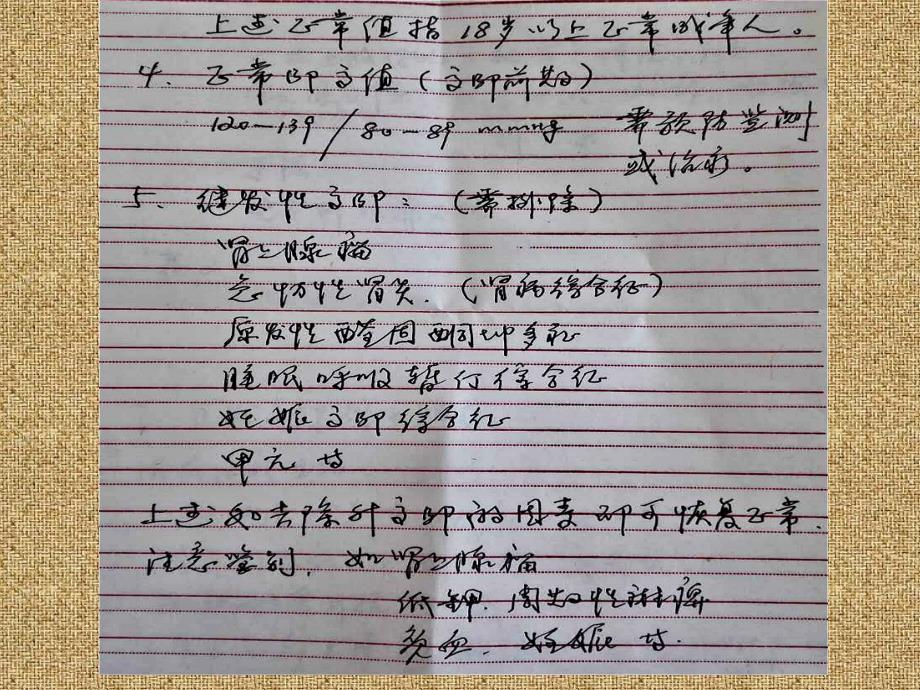 上述正常值指18岁以上正常成年人。
4. 正常BP高值(高BP前期)
120—139/80—89 mmHg 需预防监测
或治疗。
5. 继发性高BP:(需排除)
肾上腺瘤
急 性肾炎.(肾病综合征)
原发性醛固酮 多症
睡眠呼吸暂停综合征
妊娠高BP综合征
甲亢等
上述如去除升高BP的因素即可恢复正常.
注意鉴别,如肾上腺瘤
低钾.周期性麻痹
贫血.妊娠等.